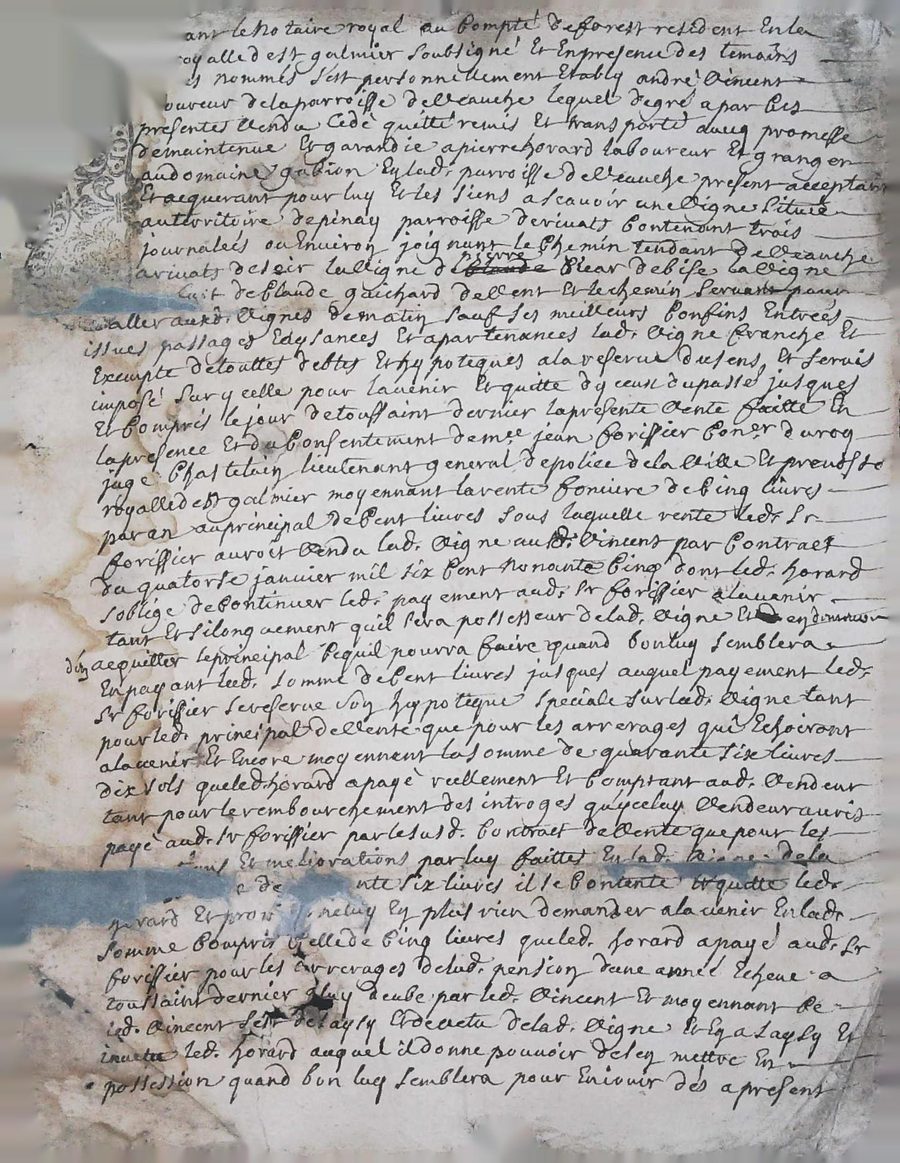 ant le Notaire royal au Compté de forest resident En la
royalle de st galmier soubsigné Et En presence des temoins
nommés s'est personnellement Etably andré Vincent
oureur de la parroisse de Veauche lequel de gré a par Ces
presentes Vendu Cédé quitté remis Et transporté avecq promesse
de maintenue Et garandie a pierre horard laboureur Et granger
au domaine gabion En lad. parroisse de Veauche present acceptant
Et acquerant pour luy Et les siens ascavoir une Vigne Située
au territoire depinay parroisse de rivats Contenant trois
journalées ou Environ joignant le Chemin tendant de Veauche
a rivats de soir la Vigne de pierre Claude de bise la Vigne
de Claude guichard de Vent Et le chemin servant pour
aller aux d. Vignes de matin sauf ses meilleurs Confins Entrées
issues passages Edysances Et apartenances lad. Vigne franche Et
Exempte de touttes debtes Et hypoteques a la reserve du sens, Et servis
imposé sur ycelle pour lavenir Et quitte dyceux du passé jusques
Et Compris le jour de toussaint dernier la presente Vente faitte En
la presence Et du Consentement de mre jean forissier Coner du roy
juge Chastelain lieutenant general de police de la Ville Et prevosté
royalle de st galmier moyennant la rente fonciere de Cinq livres
par an au principal de Cent livres sous laquelle rente led. Sr
forissier auroit Vendu lad. Vigne aud. Vincent par Contract
du quatorse janvier mil six Cent Nonante Cinq dont led. horard
s'oblige de Continuer led. payement aud. Sr forissier a lavenir
tant Et si longuement quil sera possesseur de lad. Vigne Et
acquitter le principal Cequil pourra faire quand bon luy semblera
En payant lad. somme de Cent livres jusques auquel payement led.
Sr forissier se reserve son hypoteque speciale sur lad. Vigne tant
pour led. principal de Vente que pour les arrerages qui Echoiront
a lavenir Et Encore moyennant la somme de quarante six livres
dix sols que led. horard a payé reellement Et Comptant aud. Vendeur
tant pour le rembourchement des introges quyceluy Vendeur avoit
payé aud. Sr forissier par le susd. Contract de Vente que pour les
Et meliorations par luy faittes En lad. Vigne de la
e de nte six livres il se Contente Et quitte led.
horard Et En plus rien demander a lavenir En lad.
somme Compris Celle de Cinq livres que led. horard a payé aud. Sr
forissier pour les arrerages de lad. pension dune année Echeue a
toussaint dernier a luy deube par led. Vincent Et moyennant Ce
led. Vincent s'est desaysy Et devetu de lad. Vigne Et En a saysy Et
invetu led. horard auquel il donne pouvoir de sen mettre En
possession quand bon luy semblera pour En jouir dès a present